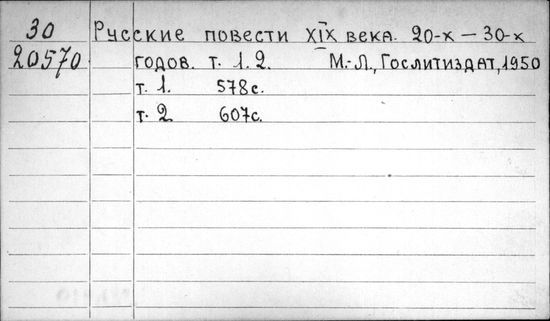 30 Русские повести XIX века. 20-х — 30-х
20570 годов. т. 1. 2. М.-Л., Гослитиздат, 1950
т. 1. 578 с.
т. 2 607 с.